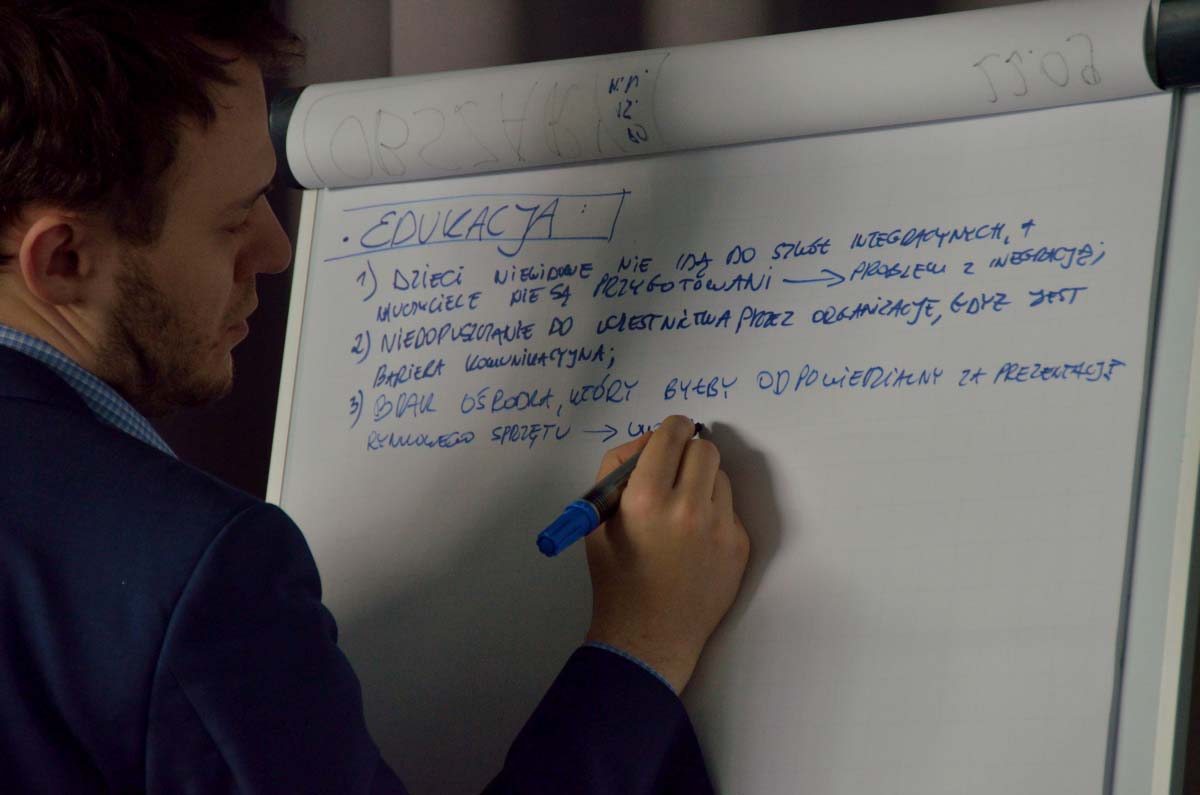 N.P.
12.
60
• EDUKACJA:
1) DZIECI NIEWIDOME NIE IDĄ DO SZKÓŁ INTEGRACYJNYCH, +
NAUCZYCIELE NIE SĄ PRZYGOTOWANI → PROBLEM Z INEGRACJĘ;
2) NIEDOPUSZCZANIE DO UCZESTNICTWA PRZEZ ORGANIZACJE, GDYŻ JEST
BARIERA KOMUNIKACYJNA;
3) BRAK OŚRODKA, KTÓRY BYŁBY ODPOWIEDZIALNY ZA PREZENTACJĘ
RYNKOWEGO SPRZĘTU →